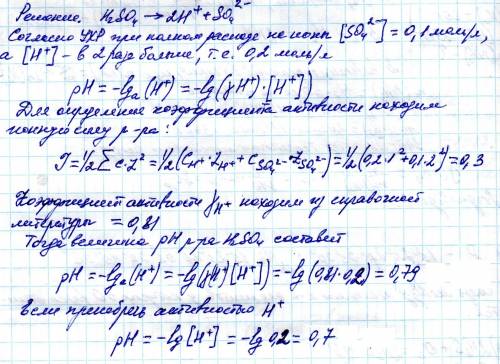 Решение. H₂SO₄ → 2H⁺ + SO₄²⁻
Согласно УХР при полном распаде на ионы [SO₄²⁻] = 0,1 моль/л,
а [H⁺] – в 2 раза больше, т.е. 0,2 моль/л
pH = –lg a(H⁺) = –lg(γH⁺)·[H⁺])
Для определения коэффициента активности находим
ионную силу р-ра:
I = ½ Σ c·z² = ½ (C_H⁺·Z_H⁺ + C_SO₄²⁻·Z_SO₄²⁻) = ½ (0,2·1² + 0,1·2²) = 0,3
Коэффициент активности γ_H⁺ находим из справочной
литературы = 0,81
Тогда величина pH р-ра H₂SO₄ составит
pH = –lg a(H⁺) = –lg(γ(H⁺)[H⁺]) = –lg(0,81·0,2) = 0,79
Если пренебречь активностью H⁺
pH = –lg[H⁺] = –lg 0,2 = 0,7